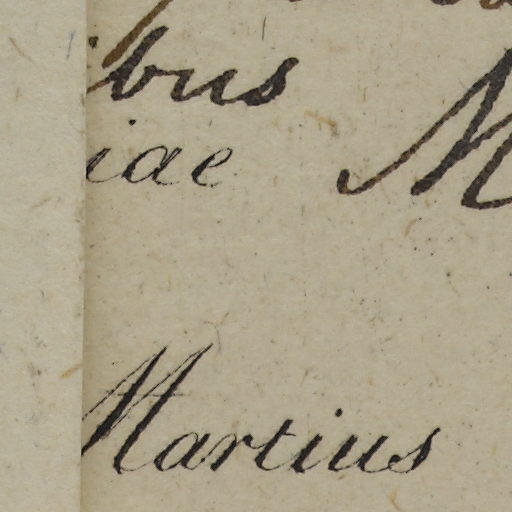 ibus
iae M
Martius